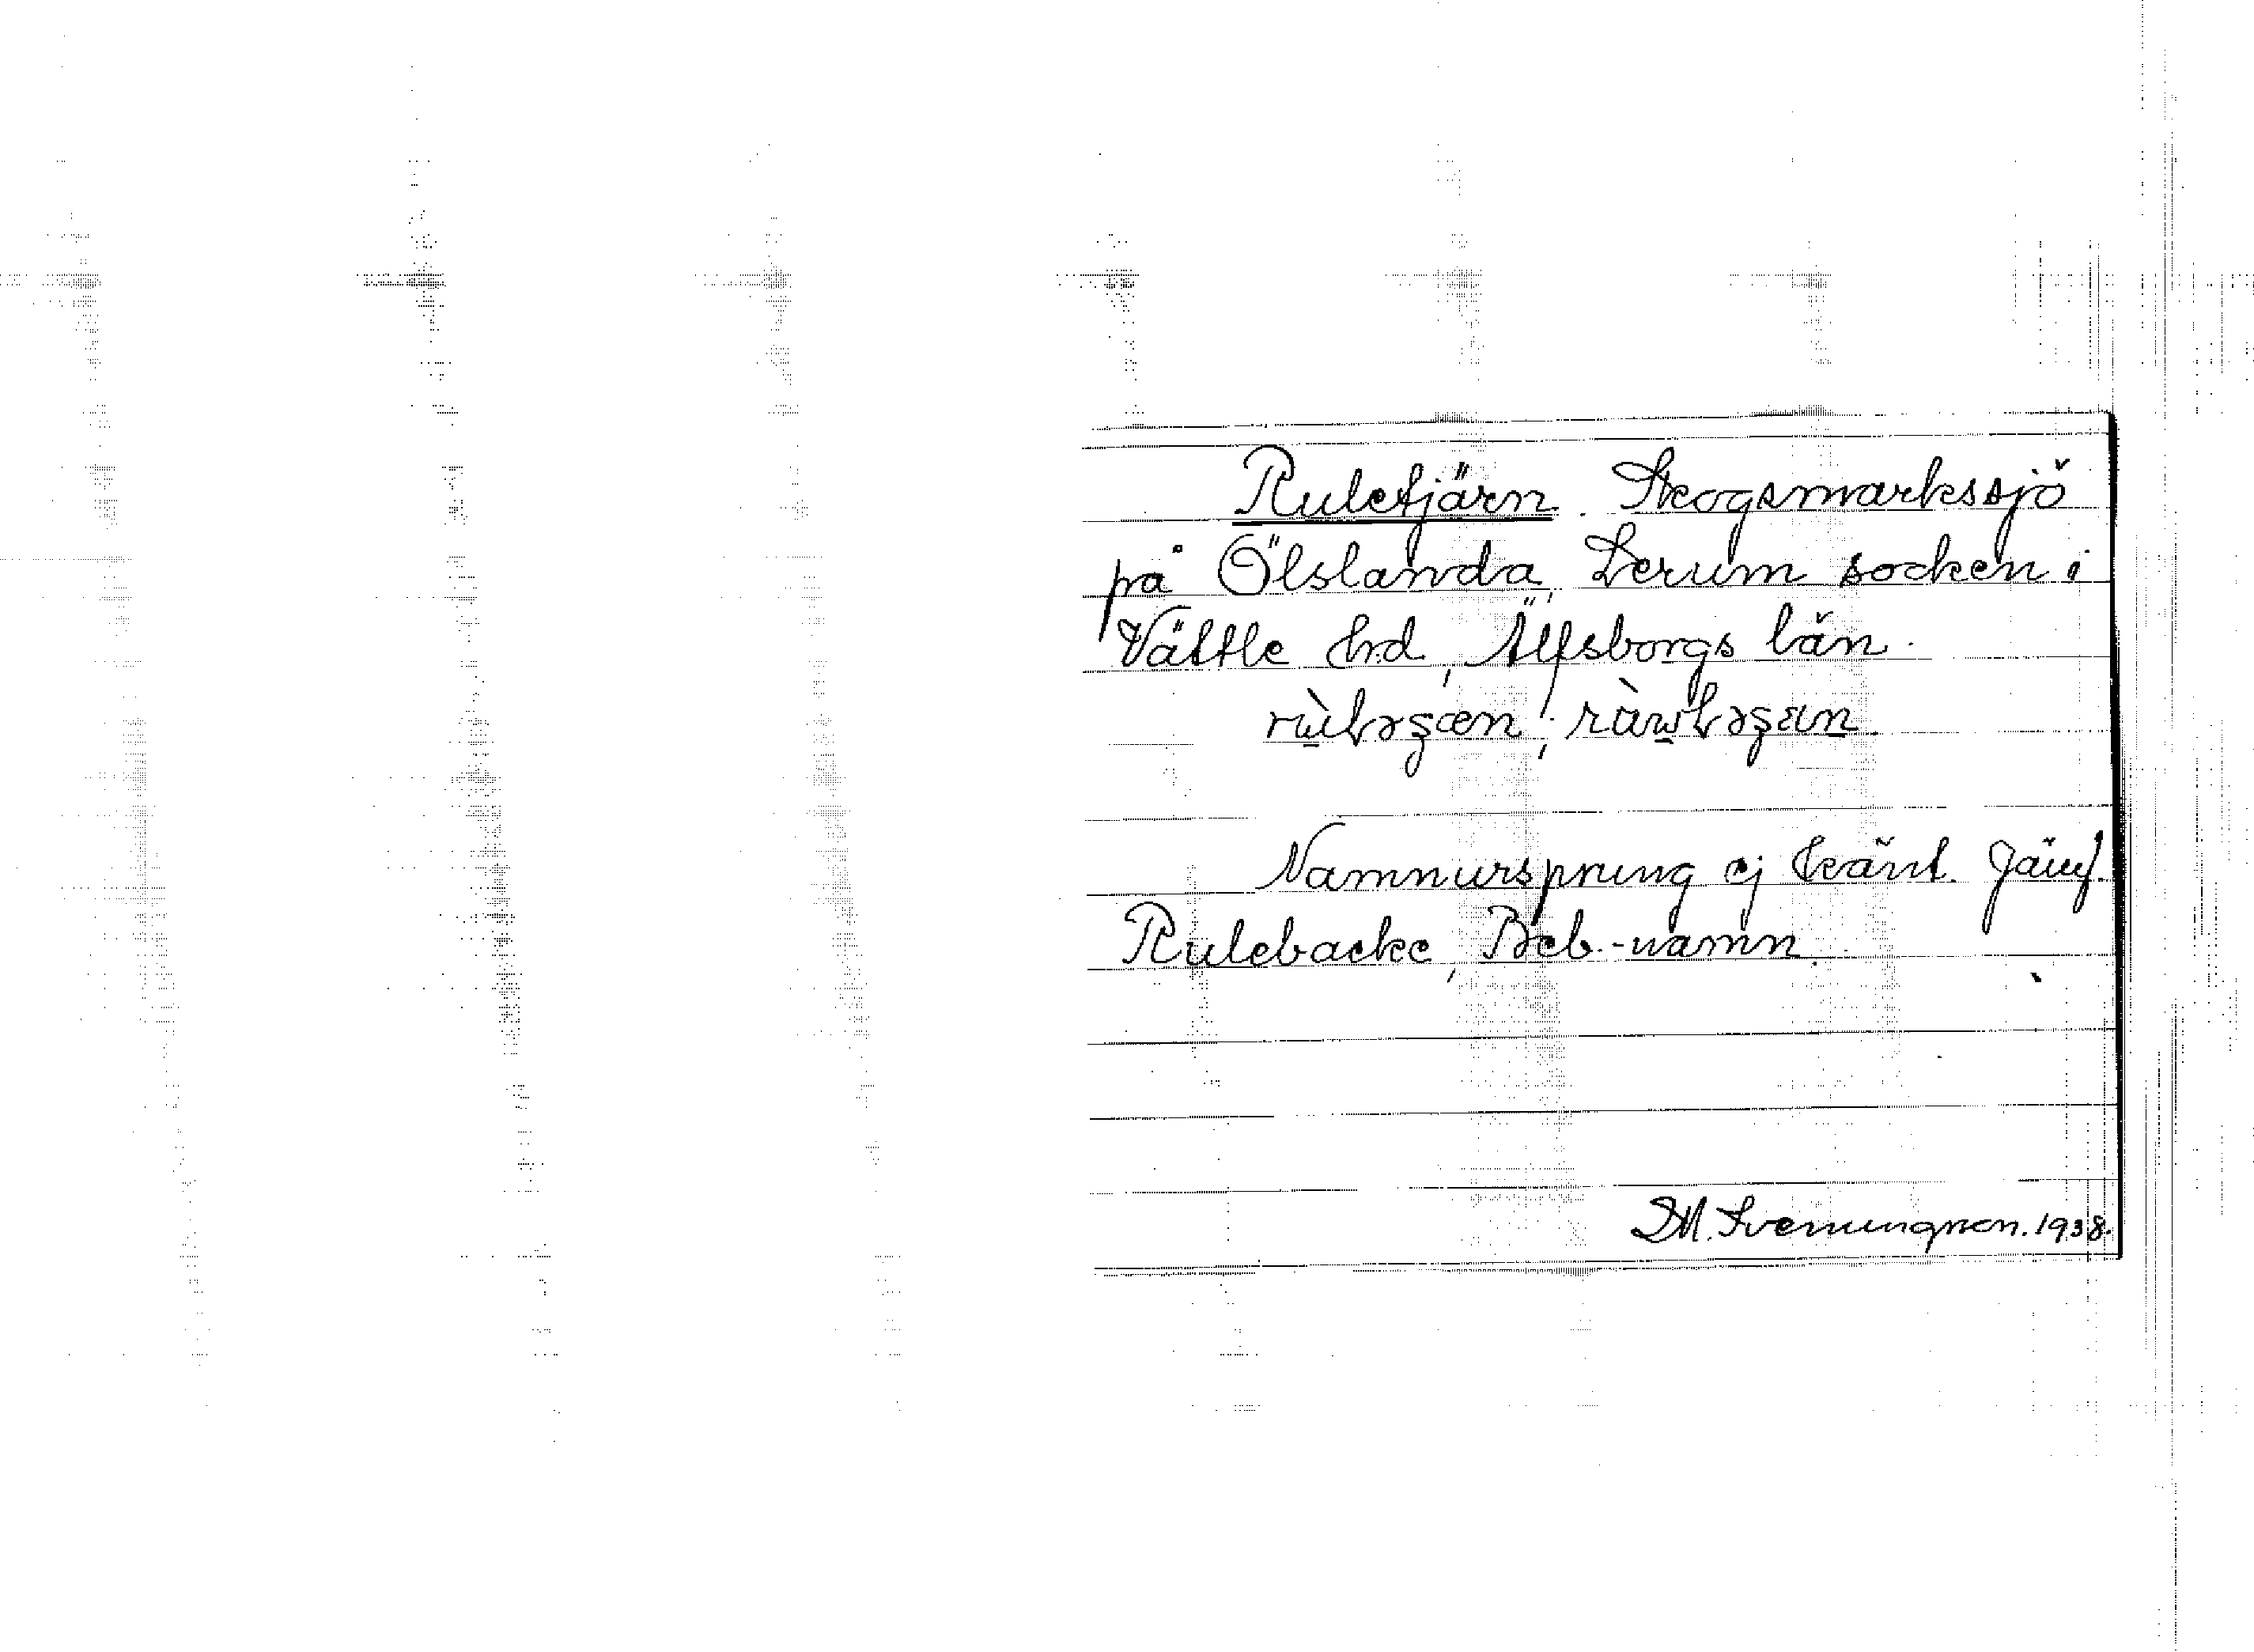 Ruletjärn. Skogsmarkssjö
på Ölslanda, Lerum socken i
Vättle hd, Älfsborgs län.
Namnursprung ej känt. Jämf.
Rulebacke, Beb.-namn.
D.M. Svenungsson. 1938.